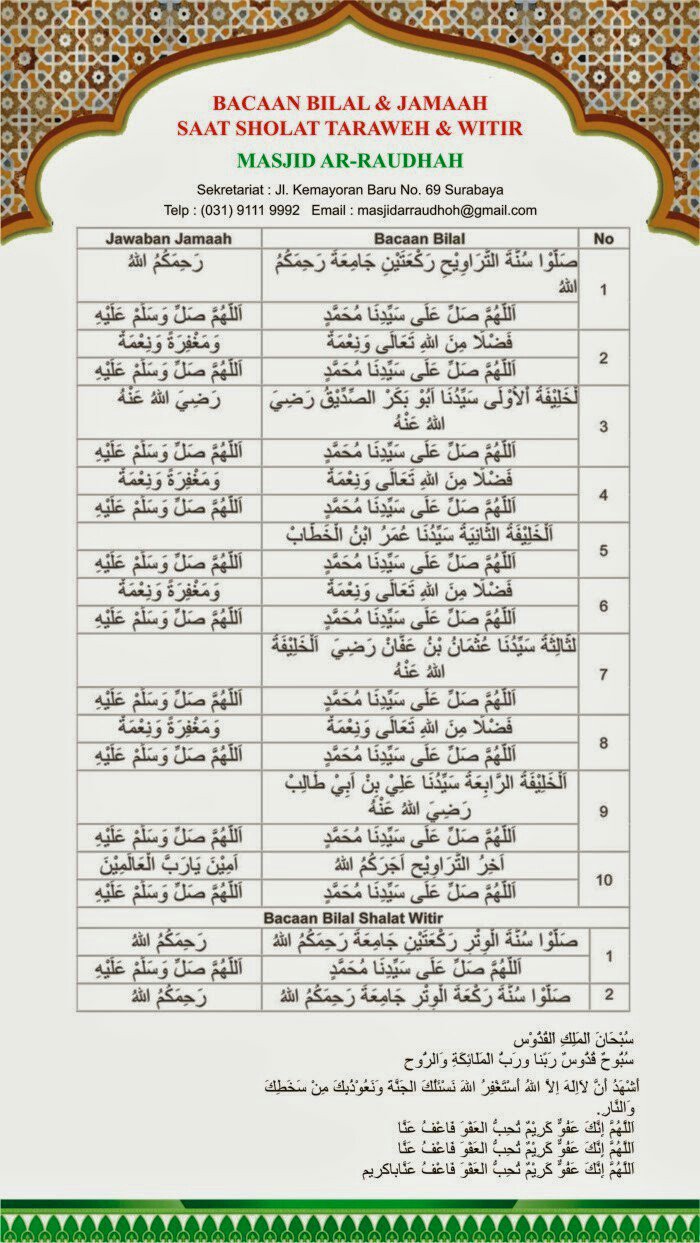 BACAAN BILAL & JAMAAH
SAAT SHOLAT TARAWEH & WITIR
MASJID AR-RAUDHAH
Sekretariat : Jl. Kemayoran Baru No. 69 Surabaya
Telp : (031) 9111 9992 Email : masjidarraudhoh@gmail.com
Jawaban Jamaah Bacaan Bilal No
صَلُّوْا سُنَّةَ التَّرَاوِيْحِ رَكْعَتَيْنِ جَامِعَةَ رَحِمَكُمُ رَحِمَكُمُ اللهُ
اللهُ
1
اَللّٰهُمَّ صَلِّ عَلَى سَيِّدِنَا مُحَمَّدٍ اَللّٰهُمَّ صَلِّ وَسَلِّمْ عَلَيْهِ
فَضْلًا مِنَ اللهِ تَعَالَى وَنِعْمَةً وَمَغْفِرَةً وَنِعْمَةً
2
اَللّٰهُمَّ صَلِّ عَلَى سَيِّدِنَا مُحَمَّدٍ اَللّٰهُمَّ صَلِّ وَسَلِّمْ عَلَيْهِ
لْخَلِيْفَةُ اْلأَوْلَى سَيِّدُنَا اَبُوْ بَكَرْ الصِّدِّيْقُ رَضِيَ رَضِيَ اللهُ عَنْهُ
اللهُ عَنْهُ
3
اَللّٰهُمَّ صَلِّ عَلَى سَيِّدِنَا مُحَمَّدٍ اَللّٰهُمَّ صَلِّ وَسَلِّمْ عَلَيْهِ
فَضْلًا مِنَ اللهِ تَعَالَى وَنِعْمَةً وَمَغْفِرَةً وَنِعْمَةً
4
اَللّٰهُمَّ صَلِّ عَلَى سَيِّدِنَا مُحَمَّدٍ اَللّٰهُمَّ صَلِّ وَسَلِّمْ عَلَيْهِ
اَلْخَلِيْفَةُ الثَّانِيَةُ سَيِّدُنَا عُمَرُ ابْنُ الْخَطَّابْ
5
اَللّٰهُمَّ صَلِّ عَلَى سَيِّدِنَا مُحَمَّدٍ اَللّٰهُمَّ صَلِّ وَسَلِّمْ عَلَيْهِ
فَضْلًا مِنَ اللهِ تَعَالَى وَنِعْمَةً وَمَغْفِرَةً وَنِعْمَةً
6
اَللّٰهُمَّ صَلِّ عَلَى سَيِّدِنَا مُحَمَّدٍ اَللّٰهُمَّ صَلِّ وَسَلِّمْ عَلَيْهِ
لثَّالِثَةُ سَيِّدُنَا عُثْمَانُ بْنُ عَفَّانْ رَضِيَ اَلْخَلِيْفَةُ
اللهُ عَنْهُ
7
اَللّٰهُمَّ صَلِّ عَلَى سَيِّدِنَا مُحَمَّدٍ اَللّٰهُمَّ صَلِّ وَسَلِّمْ عَلَيْهِ
فَضْلًا مِنَ اللهِ تَعَالَى وَنِعْمَةً وَمَغْفِرَةً وَنِعْمَةً
8
اَللّٰهُمَّ صَلِّ عَلَى سَيِّدِنَا مُحَمَّدٍ اَللّٰهُمَّ صَلِّ وَسَلِّمْ عَلَيْهِ
اَلْخَلِيْفَةُ الرَّابِعَةُ سَيِّدُنَا عَلِيْ بِنْ اَبِيْ طَالِبْ
رَضِيَ اللهُ عَنْهُ
9
اَللّٰهُمَّ صَلِّ عَلَى سَيِّدِنَا مُحَمَّدٍ اَللّٰهُمَّ صَلِّ وَسَلِّمْ عَلَيْهِ
اَخِرُ التَّرَاوِيْحِ اَجَرَكُمُ اللهُ اَمِيْنَ يَارَبَّ الْعَالَمِيْنَ
10
اَللّٰهُمَّ صَلِّ عَلَى سَيِّدِنَا مُحَمَّدٍ اَللّٰهُمَّ صَلِّ وَسَلِّمْ عَلَيْهِ
Bacaan Bilal Shalat Witir
صَلُّوْا سُنَّةَ الْوِتْرِ رَكْعَتَيْنِ جَامِعَةَ رَحِمَكُمُ اللهُ رَحِمَكُمُ اللهُ
1
اَللّٰهُمَّ صَلِّ عَلَى سَيِّدِنَا مُحَمَّدٍ اَللّٰهُمَّ صَلِّ وَسَلِّمْ عَلَيْهِ
2 صَلُّوْا سُنَّةَ رَكْعَةَ الْوِتْرِ جَامِعَةَ رَحِمَكُمُ اللهُ رَحِمَكُمُ اللهُ
سُبْحَانَ الْمَلِكِ الْقُدُّوْسِ
سُبُّوحٌ قُدُّوسٌ رَبّنا ورَبُّ الْمَلَائِكَةِ وَالرُّوحِ
أَشْهَدُ أَنَّ لاَإلهَ إلاَّ اللهُ أَسْتَغْفِرُ اللهَ نَسْئَلُكَ الْجَنَّةَ وَنَعُوْذُبِكَ مِنْ سَخَطِكَ
وَالنَّارِ.
اَللَّهُمَّ إِنَّكَ عَفُوٌّ كَرِيْمٌ تُحِبُّ الْعَفْوَ فَاعْفُ عَنَّا
اَللَّهُمَّ إِنَّكَ عَفُوٌّ كَرِيْمٌ تُحِبُّ الْعَفْوَ فَاعْفُ عَنَّا
اَللَّهُمَّ إِنَّكَ عَفُوٌّ كَرِيْمٌ تُحِبُّ الْعَفْوَ فَاعْفُ عَنَّاياكريم